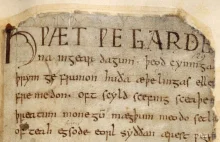 HǷÆT ǷE GARDE
na ingear dagum. þeod cyninga
þrym ge frunon huða æþelingas elle[n]
fre medon. oft scyld scefing sceaþe[na]
þreatum monegū mægþum meodo setl[a]
of teah egsode eorl syððan ærest